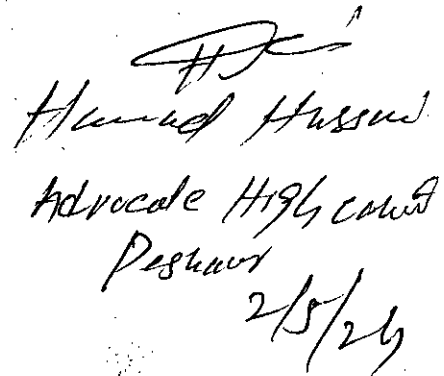 Hamad Hussain
Advocate High Court
Peshawar
2/5/24